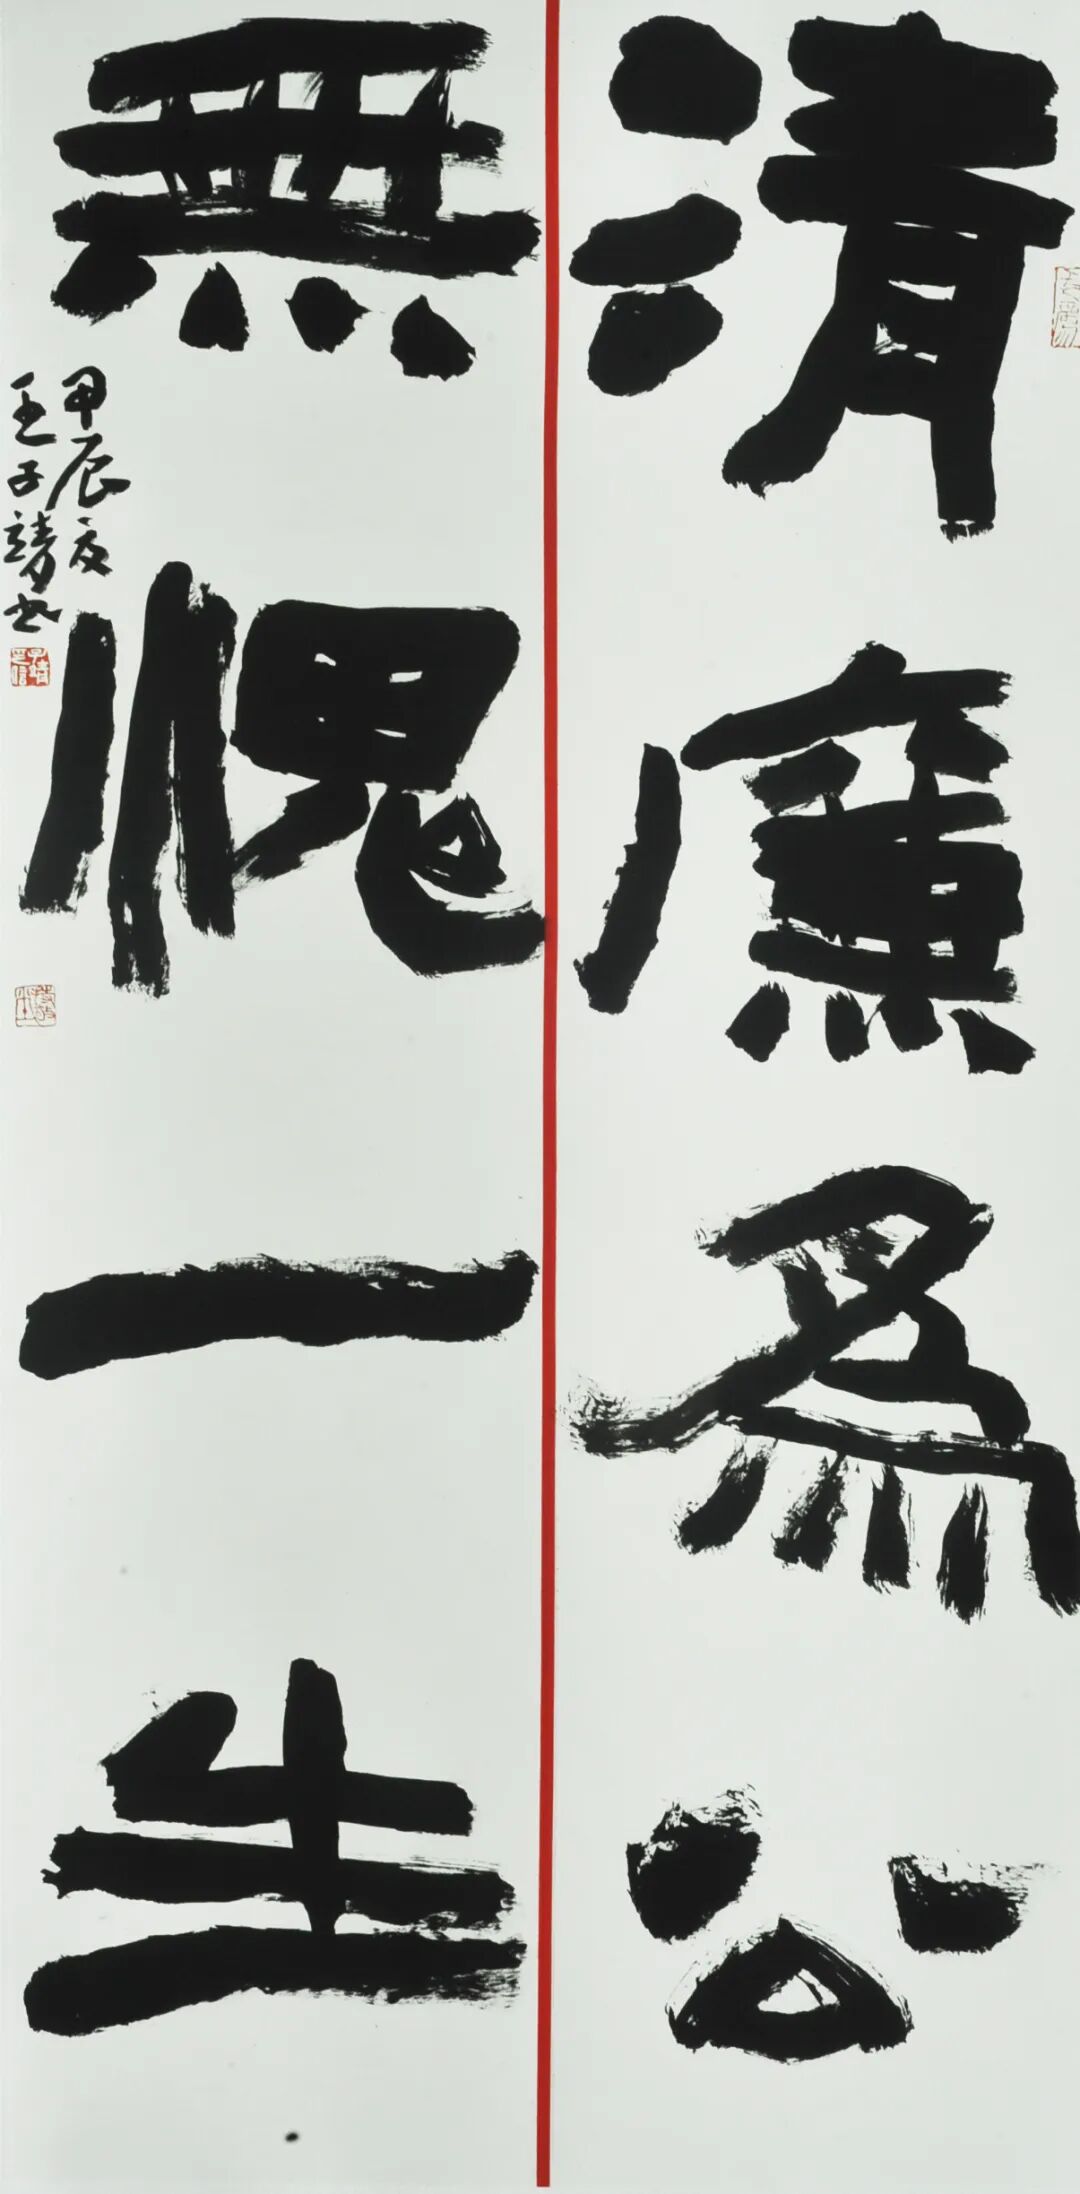 清廉為公
無愧一生
甲辰夏
王子靖书